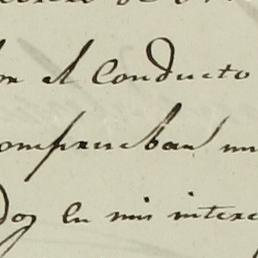 el Conducto
comprueban
dos en mis intere